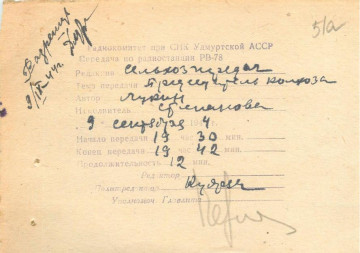 51а
Радиокомитет при СНК Удмуртской АССР
Передача по радиостанции РВ-78
Редакция сельхозпередач
Тему передачи Председатель колхоза
Автор Лукин
Исполнитель Степанова
9 сентября 4
Начало передачи 19 30 мин.
Конец передачи 19 42 мин.
Продолжительность 12 мин.
Редактор
Политредактор
Уполномоч. Главлита